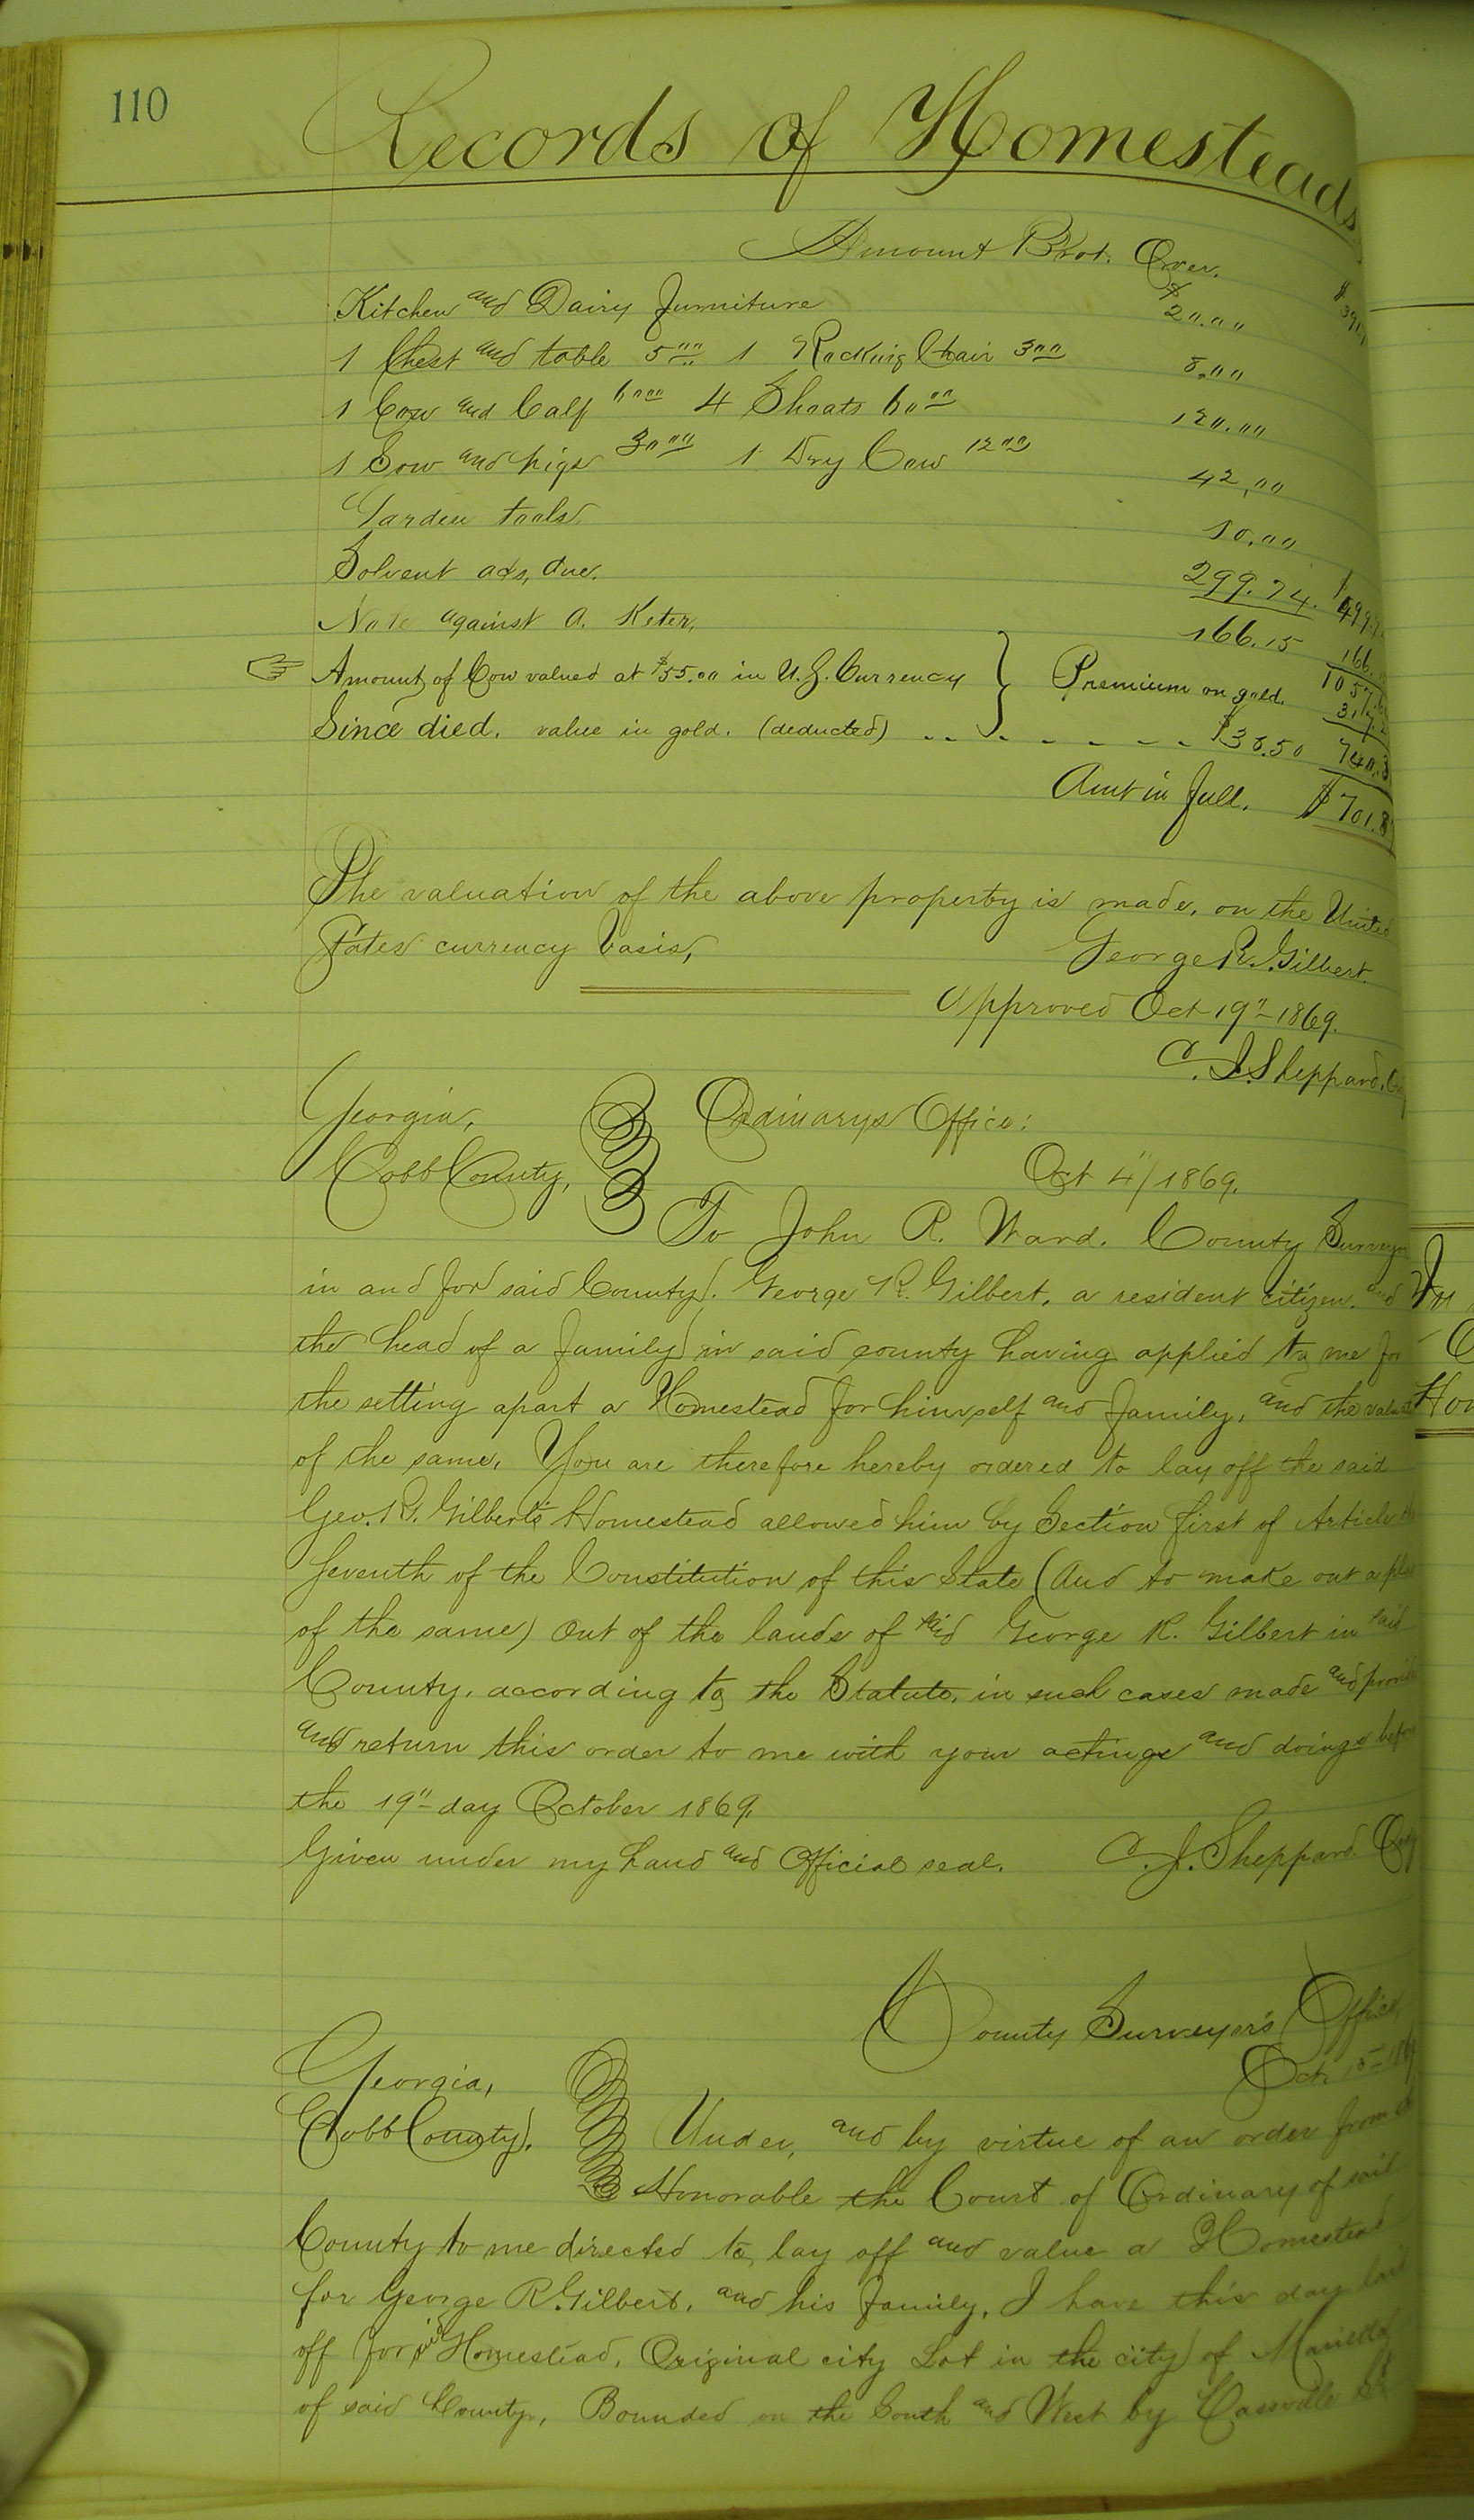 110
Records of Homesteads
Amount Brot. Over. $391
Kitchen and Dairy Furniture $20.00
1 Chest and table 5.00 1 Rocking Chair 3.00 8.00
1 Cow and Calf 60.00 4 Shoats 60.00 120.00
1 Sow and pigs 30.00 1 Dry Cow 12.00 42.00
Garden tools. 10.00
Solvent acts, due. 299.74. 499.7
Note against A. Keter, 166.15 166.
☞ Amount of Cow valued at $55.00 in U.S. Currency } Premium on gold. 1057.
317.2
Since died. value in gold. (deducted) .. - - - - - $38.50 740.3
Amt in full. $701.8
The valuation of the above property is made, on the United
States currency basis,
George R. Gilbert.
Approved Oct 19" 1869.
C. J. Sheppard,
Georgia, Ordinarys Office:
Cobb County, Oct 4"/1869.
To John R. Ward. County Surveyor
in and for said County. George R. Gilbert, a resident citizen. and
the head of a family in said county having applied to me for
the setting apart a Homestead for himself and family, and the
of the same, You are therefore hereby ordered to lay off the said
Geo. R. Gilberts Homestead allowed him by Section first of Article
Seventh of the Constitution of this State (And to make out a
of the same) out of the lands of said George R. Gilbert in said
County, according to the Statute, in such cases made and
and return this order to me with your actings and doings
the 19" day October 1869.
Given under my hand and Official seal. C. J. Sheppard.
County Surveyor's Office,
Georgia, Oct.
Cobb County, Under, and by virtue of an order from
Honorable the Court of Ordinary of said
County to me directed to lay off and value a Homestead
for George R. Gilbert, and his family, I have this day laid
off for his Homestead, Original city Lot in the city of Marietta
of said County, Bounded on the South and West by Cassville
In
Hom